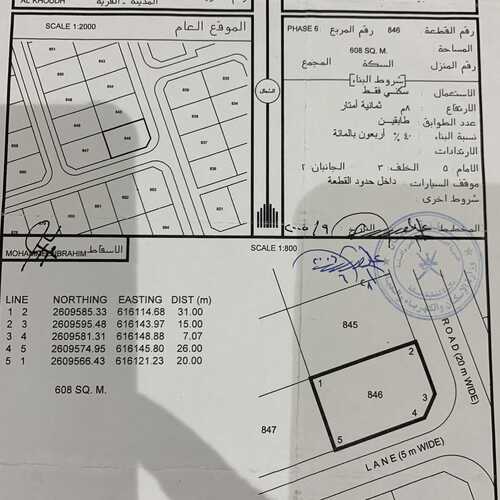 AL KHOUDH
المدينة - القرية
SCALE 1:2000
الموقع العام
PHASE 6 رقم المربع 846 رقم القطعة
608 SQ. M. المساحة
المجمع السكة رقم المنزل
شروط البناء
سكني فقط الاستعمال
ثمانية أمتار ٨م الارتفاع
طابقين عدد الطوابق
أربعون بالمائة ٤٠٪ نسبة البناء
الارتدادات
الامام ٥ الخلف ٣ الجانبان ٢
داخل حدود القطعة موقف السيارات
شروط اخرى
المخطط
التاريخ
الشمال
846
847
845
MOHAMED IBRAHIM
الاسقاط
SCALE 1:800
LINE NORTHING EASTING DIST (m)
1 2 2609585.33 616114.68 31.00
2 3 2609595.48 616143.97 15.00
3 4 2609581.31 616148.88 7.07
4 5 2609574.95 616145.80 26.00
5 1 2609566.43 616121.23 20.00
608 SQ. M.
845
846
847
1
2
3
4
5
ROAD (20 m WIDE)
LANE (5 m WIDE)